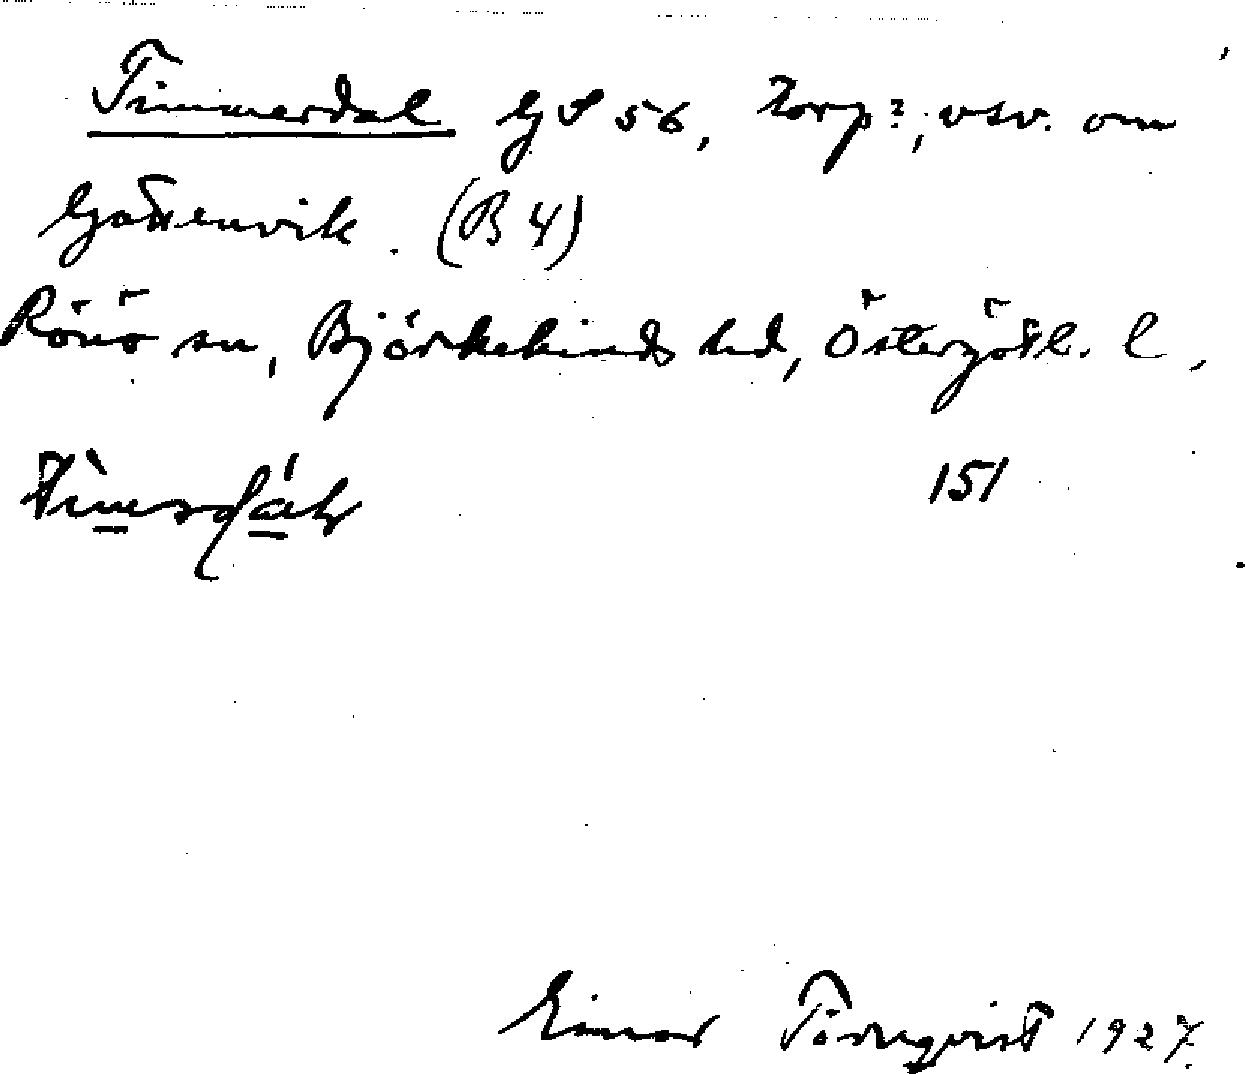 Timmerdal GS 56, Torp?, vsv. om
Gottenvik. (B 4)
Rönö sn, Björkekinds hd, Östergötl. l,
151
Einar Törnqvist 1927.